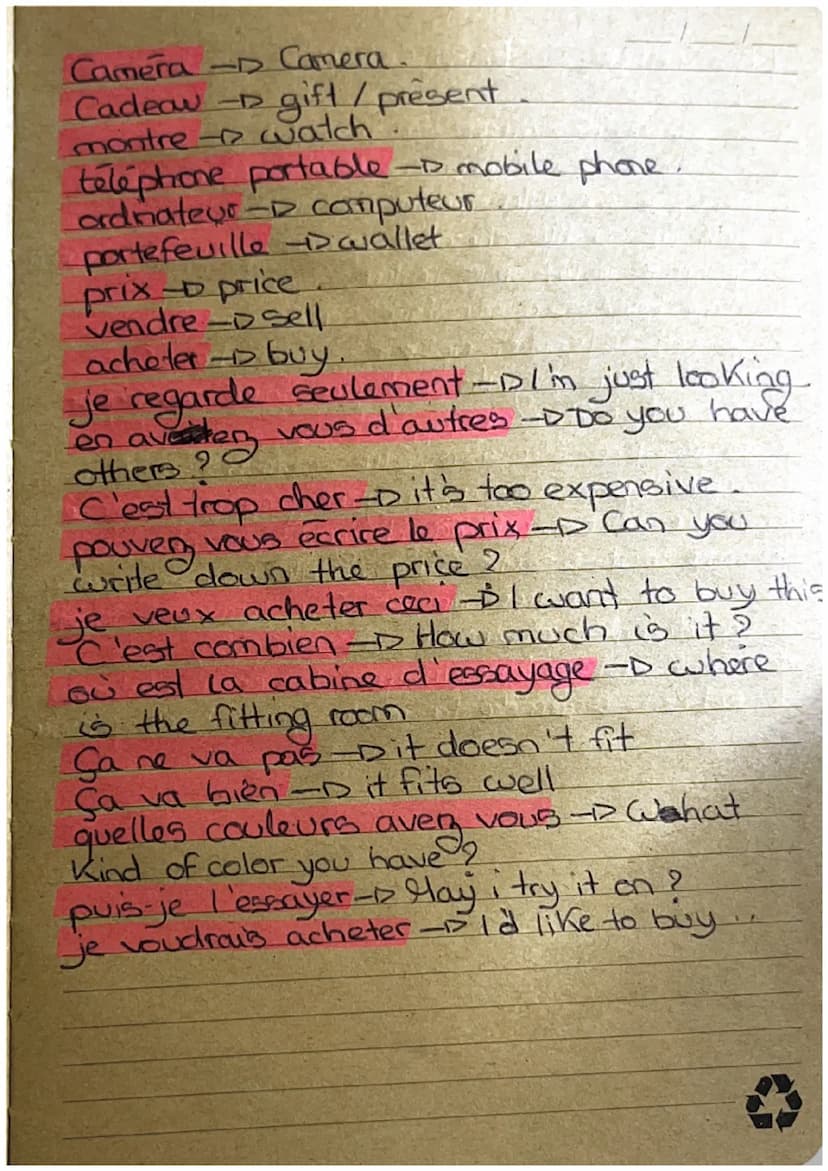 Caméra → Camera.
Cadeau → gift / present.
montre → watch.
téléphone portable → mobile phone.
ordnateur → computeur.
portefeuille → wallet
prix → price.
vendre → sell
acheter → buy.
je regarde seulement → I'm just looking
en avez vous d'autres → Do you have
others ?
C'est trop cher → it's too expensive.
pouvez vous écrire le prix → Can you
write down the price ?
je veux acheter ceci → I want to buy this
C'est combien → How much is it ?
où est la cabine d'essayage → where
is the fitting room
Ça ne va pas → it doesn't fit
Ça va bien → it fits well
quelles couleurs avez vous → What
Kind of color you have ?
puis-je l'essayer → May i try it on ?
je voudrais acheter → I'd like to buy ...